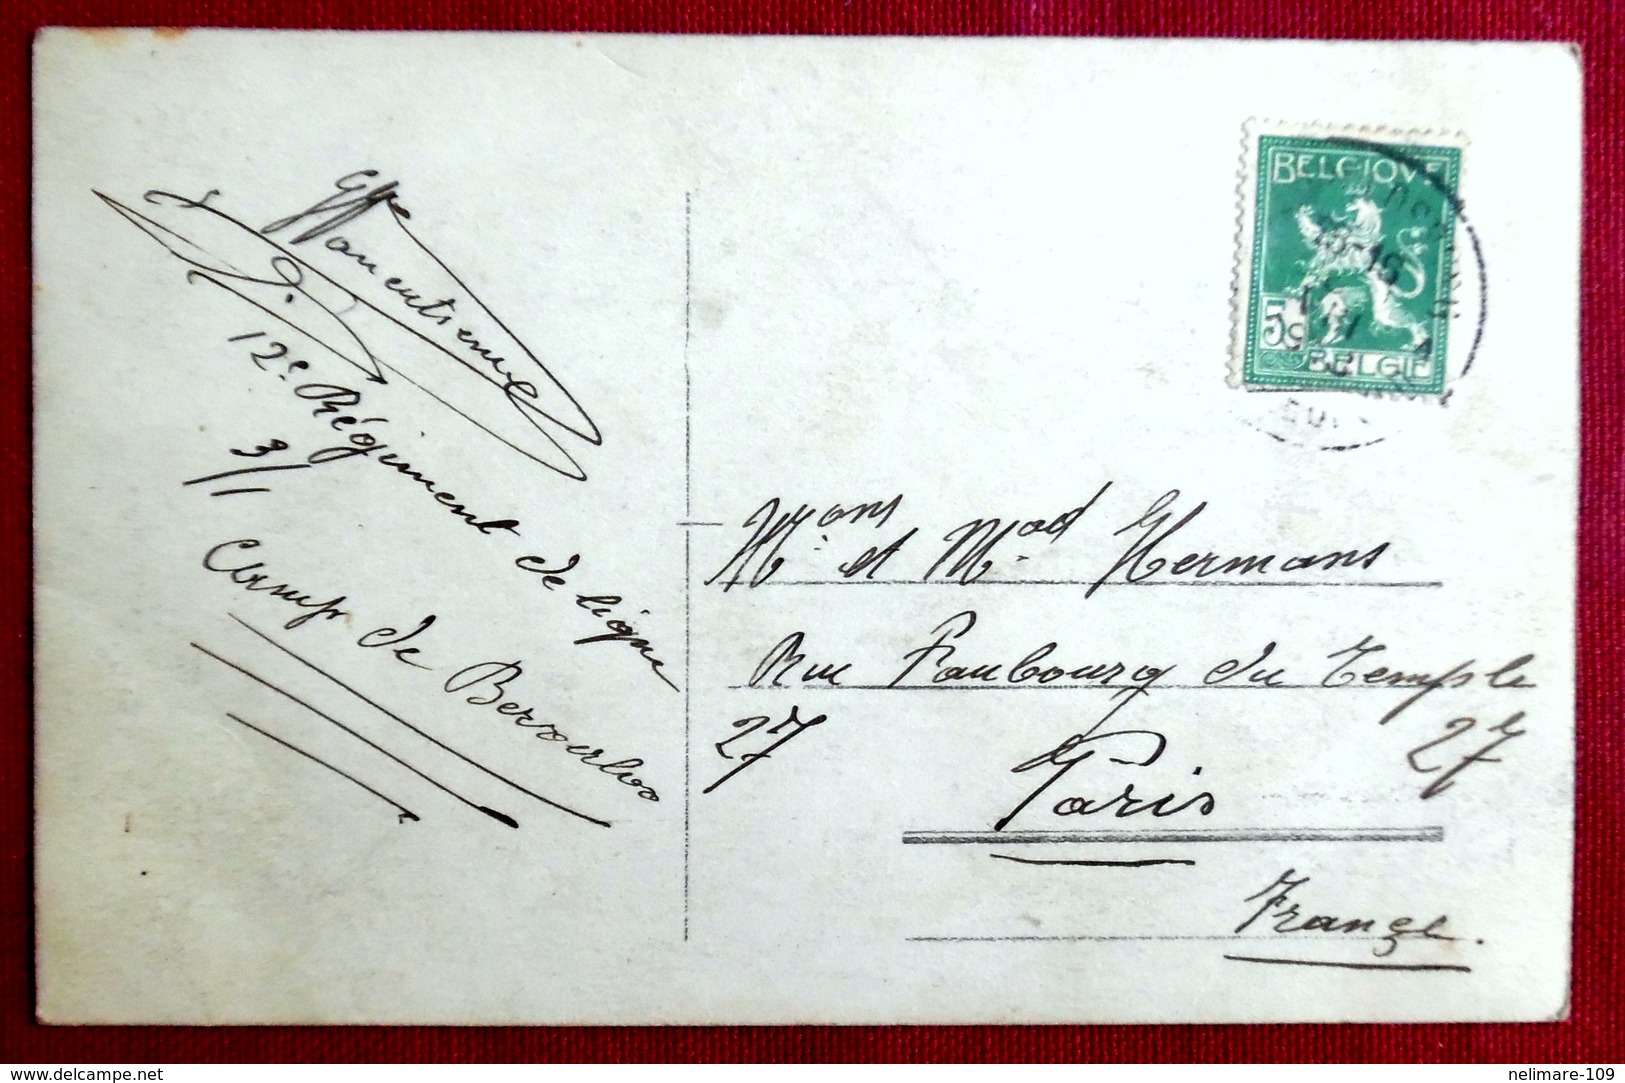 12e Régiment de ligne
3/1
Camp de Beverloo
BELGIQUE
5
BELGIË
Mr.ons et M.ad Hermans
Rue Faubourg du Temple
27 27
Paris
France.
www.delcampe.net
nelimare-109